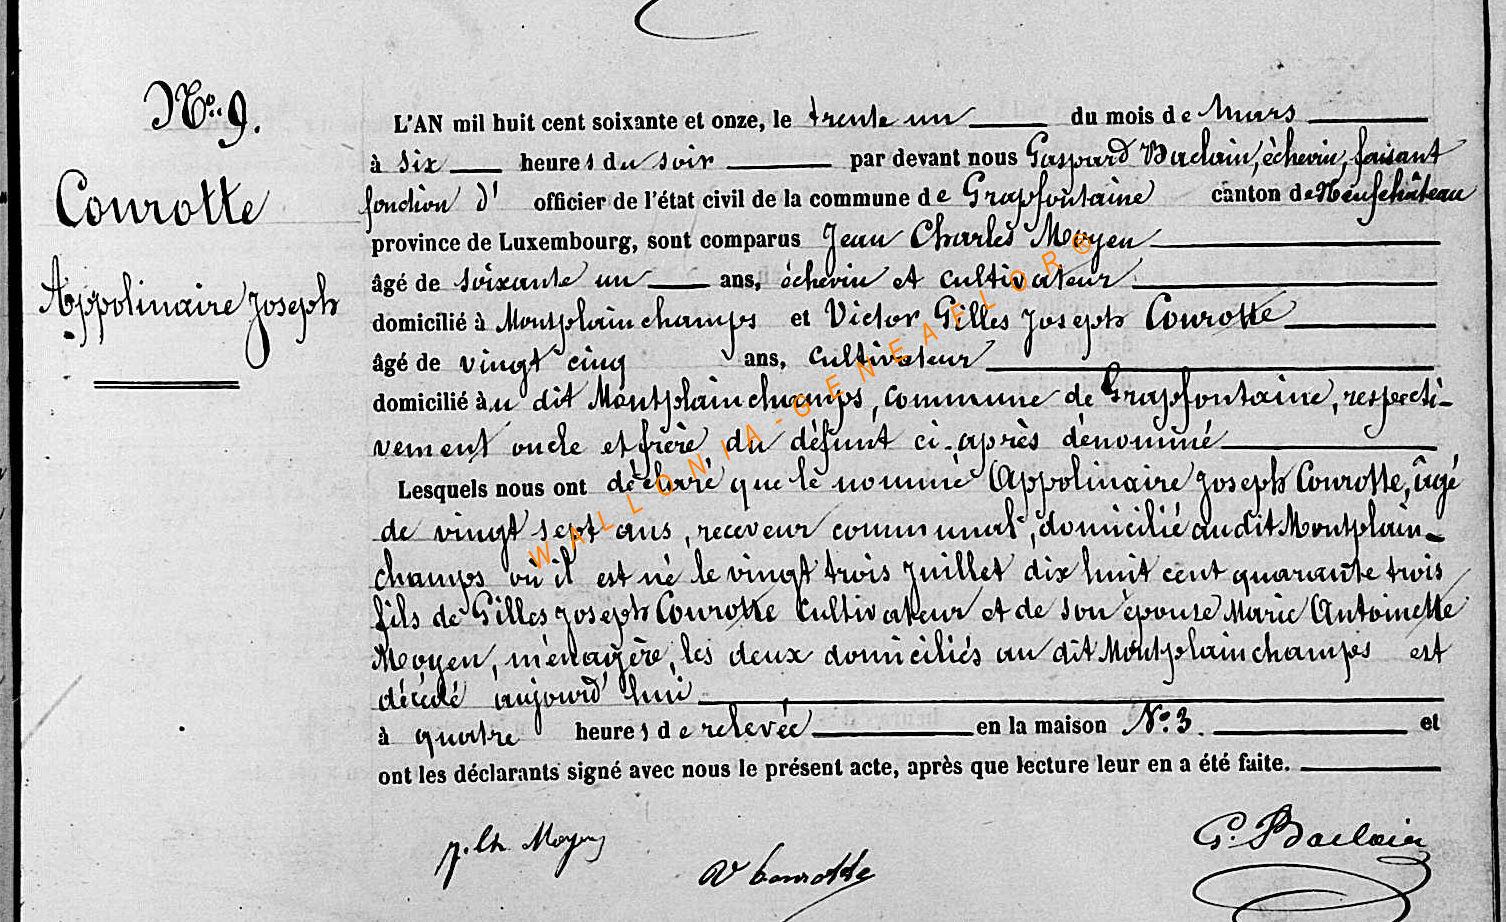 No. 9.
Courotte
Appolinaire Joseph
L'AN mil huit cent soixante et onze, le trente un du mois de Mars
à six heures du soir par devant nous Gaspard Baclain, échevin, faisant
fonction d' officier de l'état civil de la commune de Grapfontaine canton de Neufchâteau
province de Luxembourg, sont comparus Jean Charles Moyen
âgé de soixante un ans, échevin et cultivateur
domicilié à Montplainchamps et Victor Gilles Joseph Courotte
âgé de vingt cinq ans, cultivateur
domicilié au dit Montplainchamps, commune de Grapfontaine, respecti-
vement oncle et frère du défunt ci-après dénommé
Lesquels nous ont déclaré que le nommé Appolinaire Joseph Courotte, âgé
de vingt sept ans, receveur communal, domicilié au dit Montplain-
champs où il est né le vingt trois Juillet dix huit cent quarante trois
fils de Gilles Joseph Courotte cultivateur et de son épouse Marie Antoinette
Moyen, ménagère, les deux domiciliés au dit Montplainchamps est
décédé aujourd'hui
à quatre heures de relevée en la maison No. 3. et
ont les déclarants signé avec nous le présent acte, après que lecture leur en a été faite.
J. Ch Moyen
V Courotte
G. Baclain
WALLONIA-GENEAELOR®